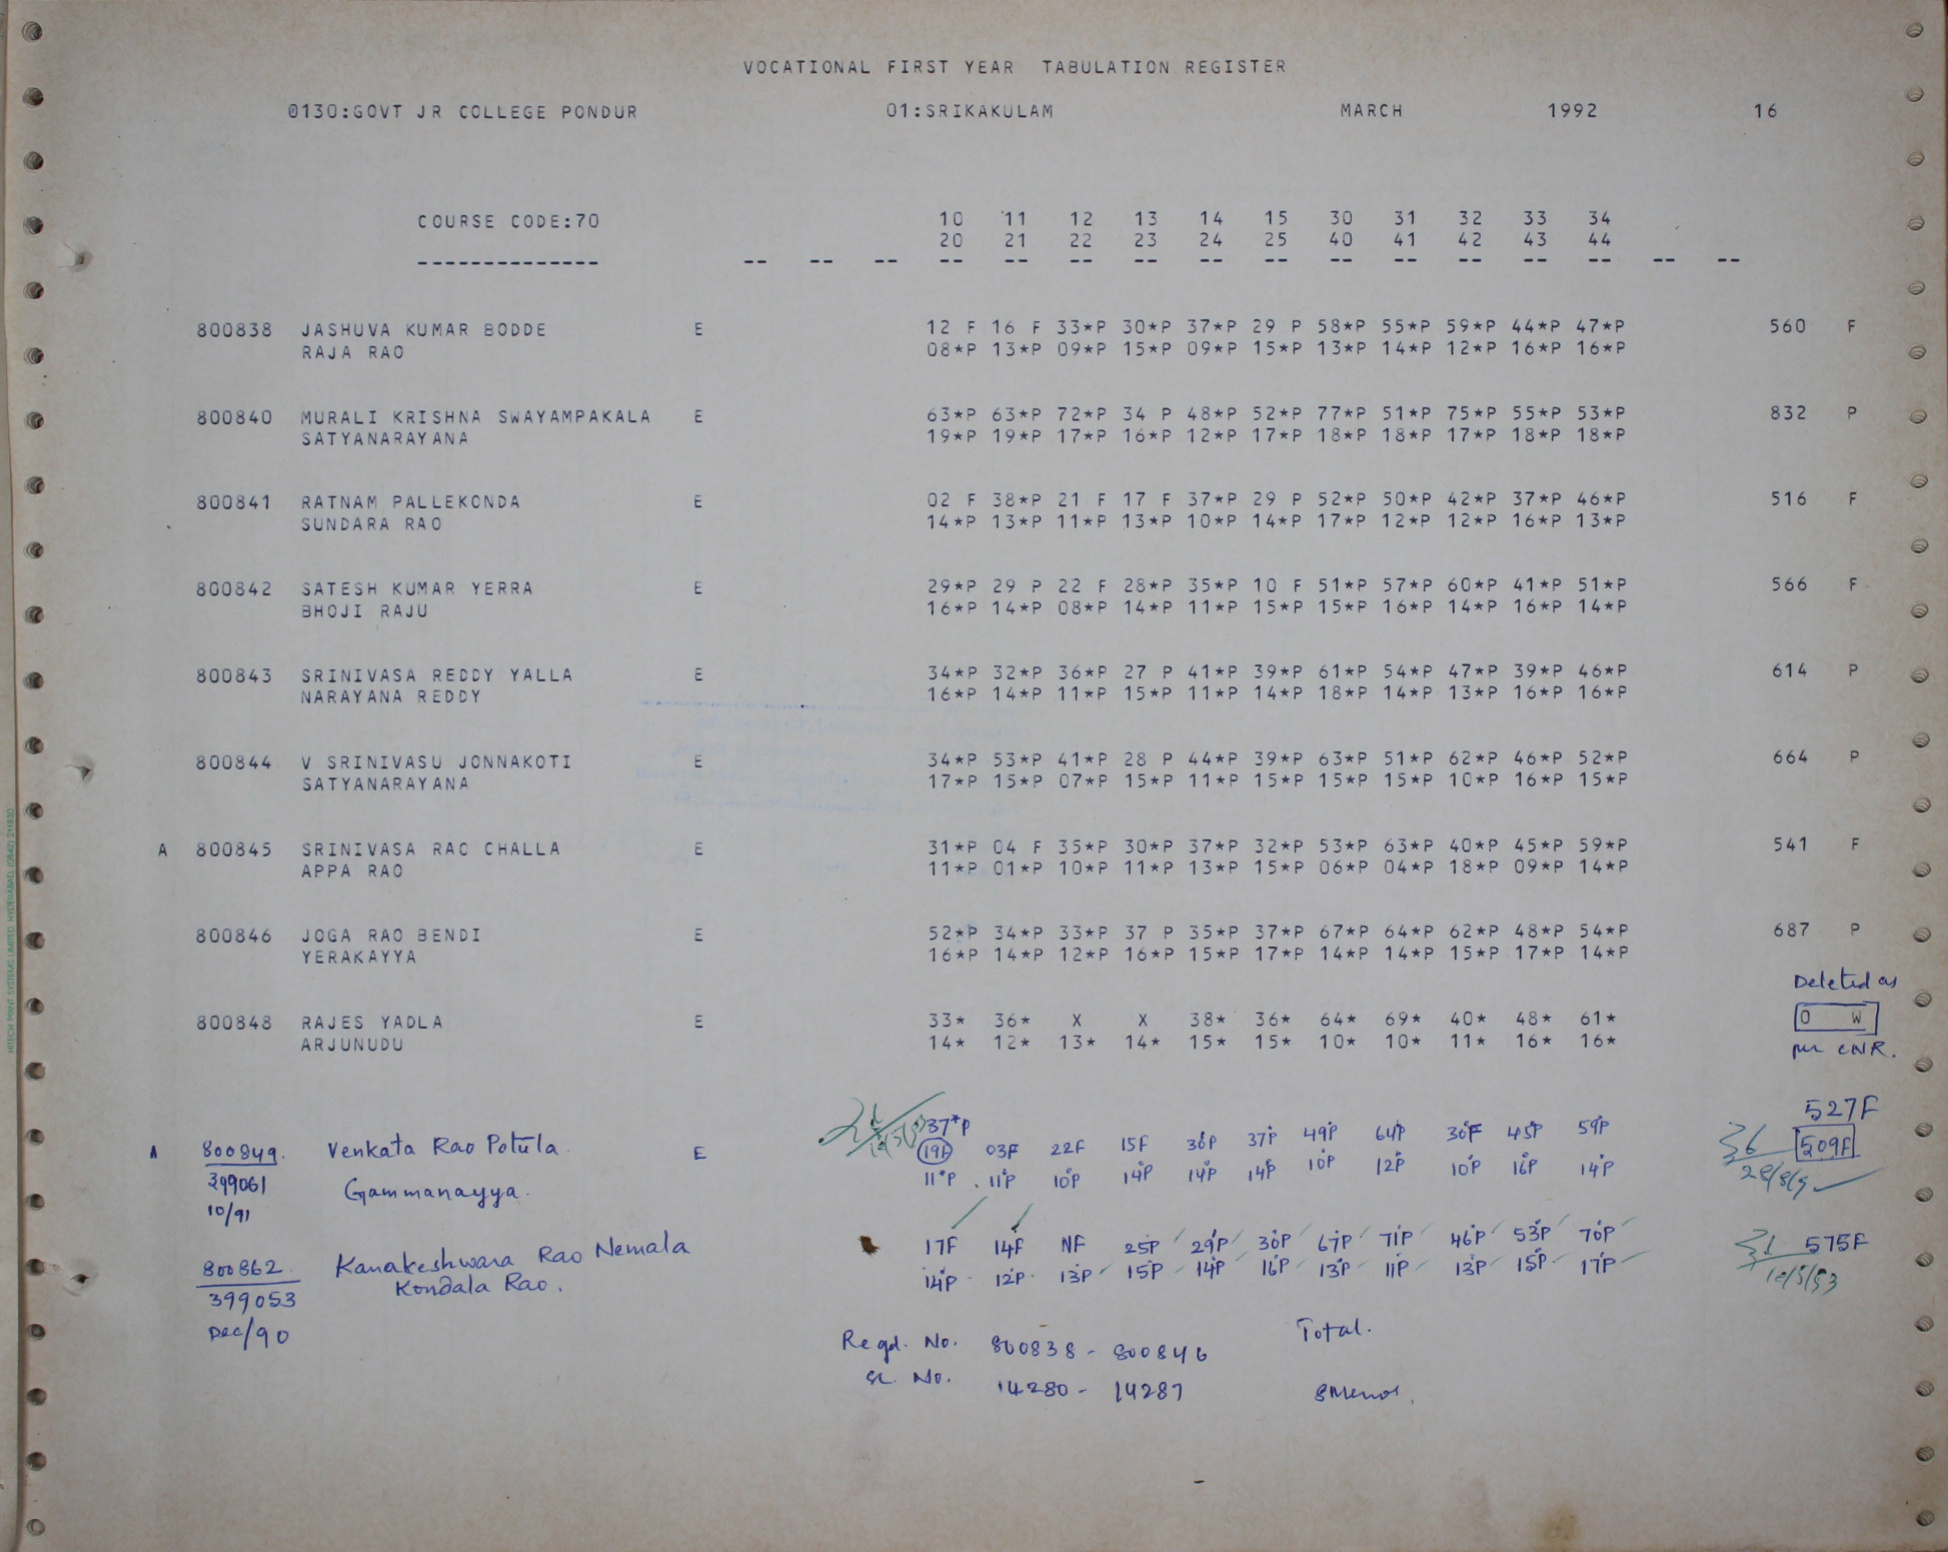 VOCATIONAL FIRST YEAR TABULATION REGISTER
0130:GOVT JR COLLEGE PONDUR 01:SRIKAKULAM MARCH 1992 16
COURSE CODE:70 10 11 12 13 14 15 30 31 32 33 34
20 21 22 23 24 25 40 41 42 43 44
-------------- -- -- -- -- -- -- -- -- -- -- -- -- -- -- -- --
800838 JASHUVA KUMAR BODDE E 12 F 16 F 33*P 30*P 37*P 29 P 58*P 55*P 59*P 44*P 47*P 560 F
RAJA RAO 08*P 13*P 09*P 15*P 09*P 15*P 13*P 14*P 12*P 16*P 16*P
800840 MURALI KRISHNA SWAYAMPAKALA E 63*P 63*P 72*P 34 P 48*P 52*P 77*P 51*P 75*P 55*P 53*P 832 P
SATYANARAYANA 19*P 19*P 17*P 16*P 12*P 17*P 18*P 18*P 17*P 18*P 18*P
800841 RATNAM PALLEKONDA E 02 F 38*P 21 F 17 F 37*P 29 P 52*P 50*P 42*P 37*P 46*P 516 F
SUNDARA RAO 14*P 13*P 11*P 13*P 10*P 14*P 17*P 12*P 12*P 16*P 13*P
800842 SATESH KUMAR YERRA E 29*P 29 P 22 F 28*P 35*P 10 F 51*P 57*P 60*P 41*P 51*P 566 F
BHOJI RAJU 16*P 14*P 08*P 14*P 11*P 15*P 15*P 16*P 14*P 16*P 14*P
800843 SRINIVASA REDDY YALLA E 34*P 32*P 36*P 27 P 41*P 39*P 61*P 54*P 47*P 39*P 46*P 614 P
NARAYANA REDDY 16*P 14*P 11*P 15*P 11*P 14*P 18*P 14*P 13*P 16*P 16*P
800844 V SRINIVASU JONNAKOTI E 34*P 53*P 41*P 28 P 44*P 39*P 63*P 51*P 62*P 46*P 52*P 664 P
SATYANARAYANA 17*P 15*P 07*P 15*P 11*P 15*P 15*P 15*P 10*P 16*P 15*P
A 800845 SRINIVASA RAO CHALLA E 31*P 04 F 35*P 30*P 37*P 32*P 53*P 63*P 40*P 45*P 59*P 541 F
APPA RAO 11*P 01*P 10*P 11*P 13*P 15*P 06*P 04*P 18*P 09*P 14*P
800846 JOGA RAO BENDI E 52*P 34*P 33*P 37 P 35*P 37*P 67*P 64*P 62*P 48*P 54*P 687 P
YERAKAYYA 16*P 14*P 12*P 16*P 15*P 17*P 14*P 14*P 15*P 17*P 14*P
Deleted as
800848 RAJES YADLA E 33* 36* X X 38* 36* 64* 69* 40* 48* 61* 0 W
ARJUNUDU 14* 12* 13* 14* 15* 15* 10* 10* 11* 16* 16*
per CNR.
37*P 527F
A 800849. Venkata Rao Potula E 19F 03F 22F 15F 36P 37P 49P 64P 30F 45P 59P 509F
399061 Gammanayya. 11*P 11P 10P 14P 14P 14P 10P 12P 10P 16P 14P
10/91
800862 Kanakeshwara Rao Nemala 17F 14F NF 25P 29P 30P 67P 71P 46P 53P 70P 575F
399053 Kondala Rao. 14P 12P 13P 15P 14P 16P 13P 11P 13P 15P 17P
10/5/93
Dec/90
Regd. No. 800838 - 800846 Total.
Sl. No. 14280 - 14287 8 Memos.
HITECH PRINT SYSTEMS LIMITED HYDERABAD